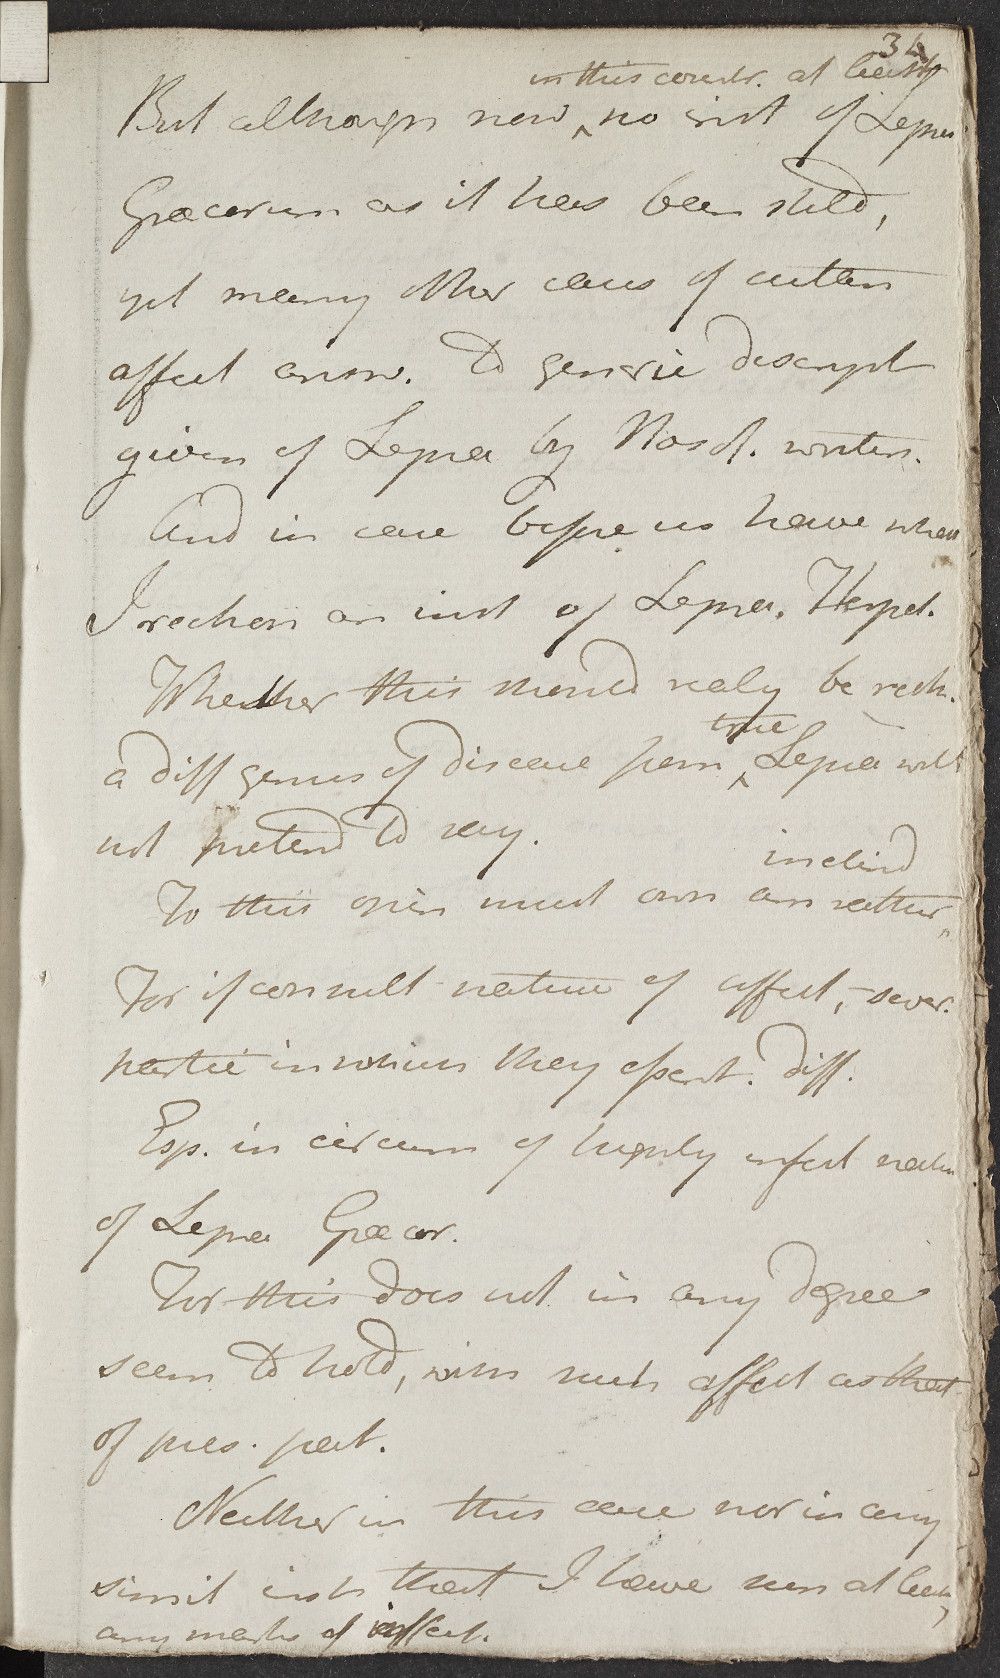 34
in this countr. at least
But although now ^ no inst of Lepra
Græcorum as it has been stild,
yet many other cases of cutan
affect answ. to generic descript
given of Lepra by Nosol. writers.
And in case before us have what
I reckon an inst of Lepra. Herpet.
Whether this should realy be reck.
true
a diff genus of disease from ^ Lepra will
not pretend to say.
inclind
To this opin must own am rather ^
For if consult nature of affect, sever.
partic in which they essent. diff.
Esp. in circum of highly infect natur
of Lepra Græcor.
For this does not in any degree
seem to hold, with such affect as that
of pres. pat.
Neither in this case nor in any
simil inst that I have seen at least,
any marks of infect.